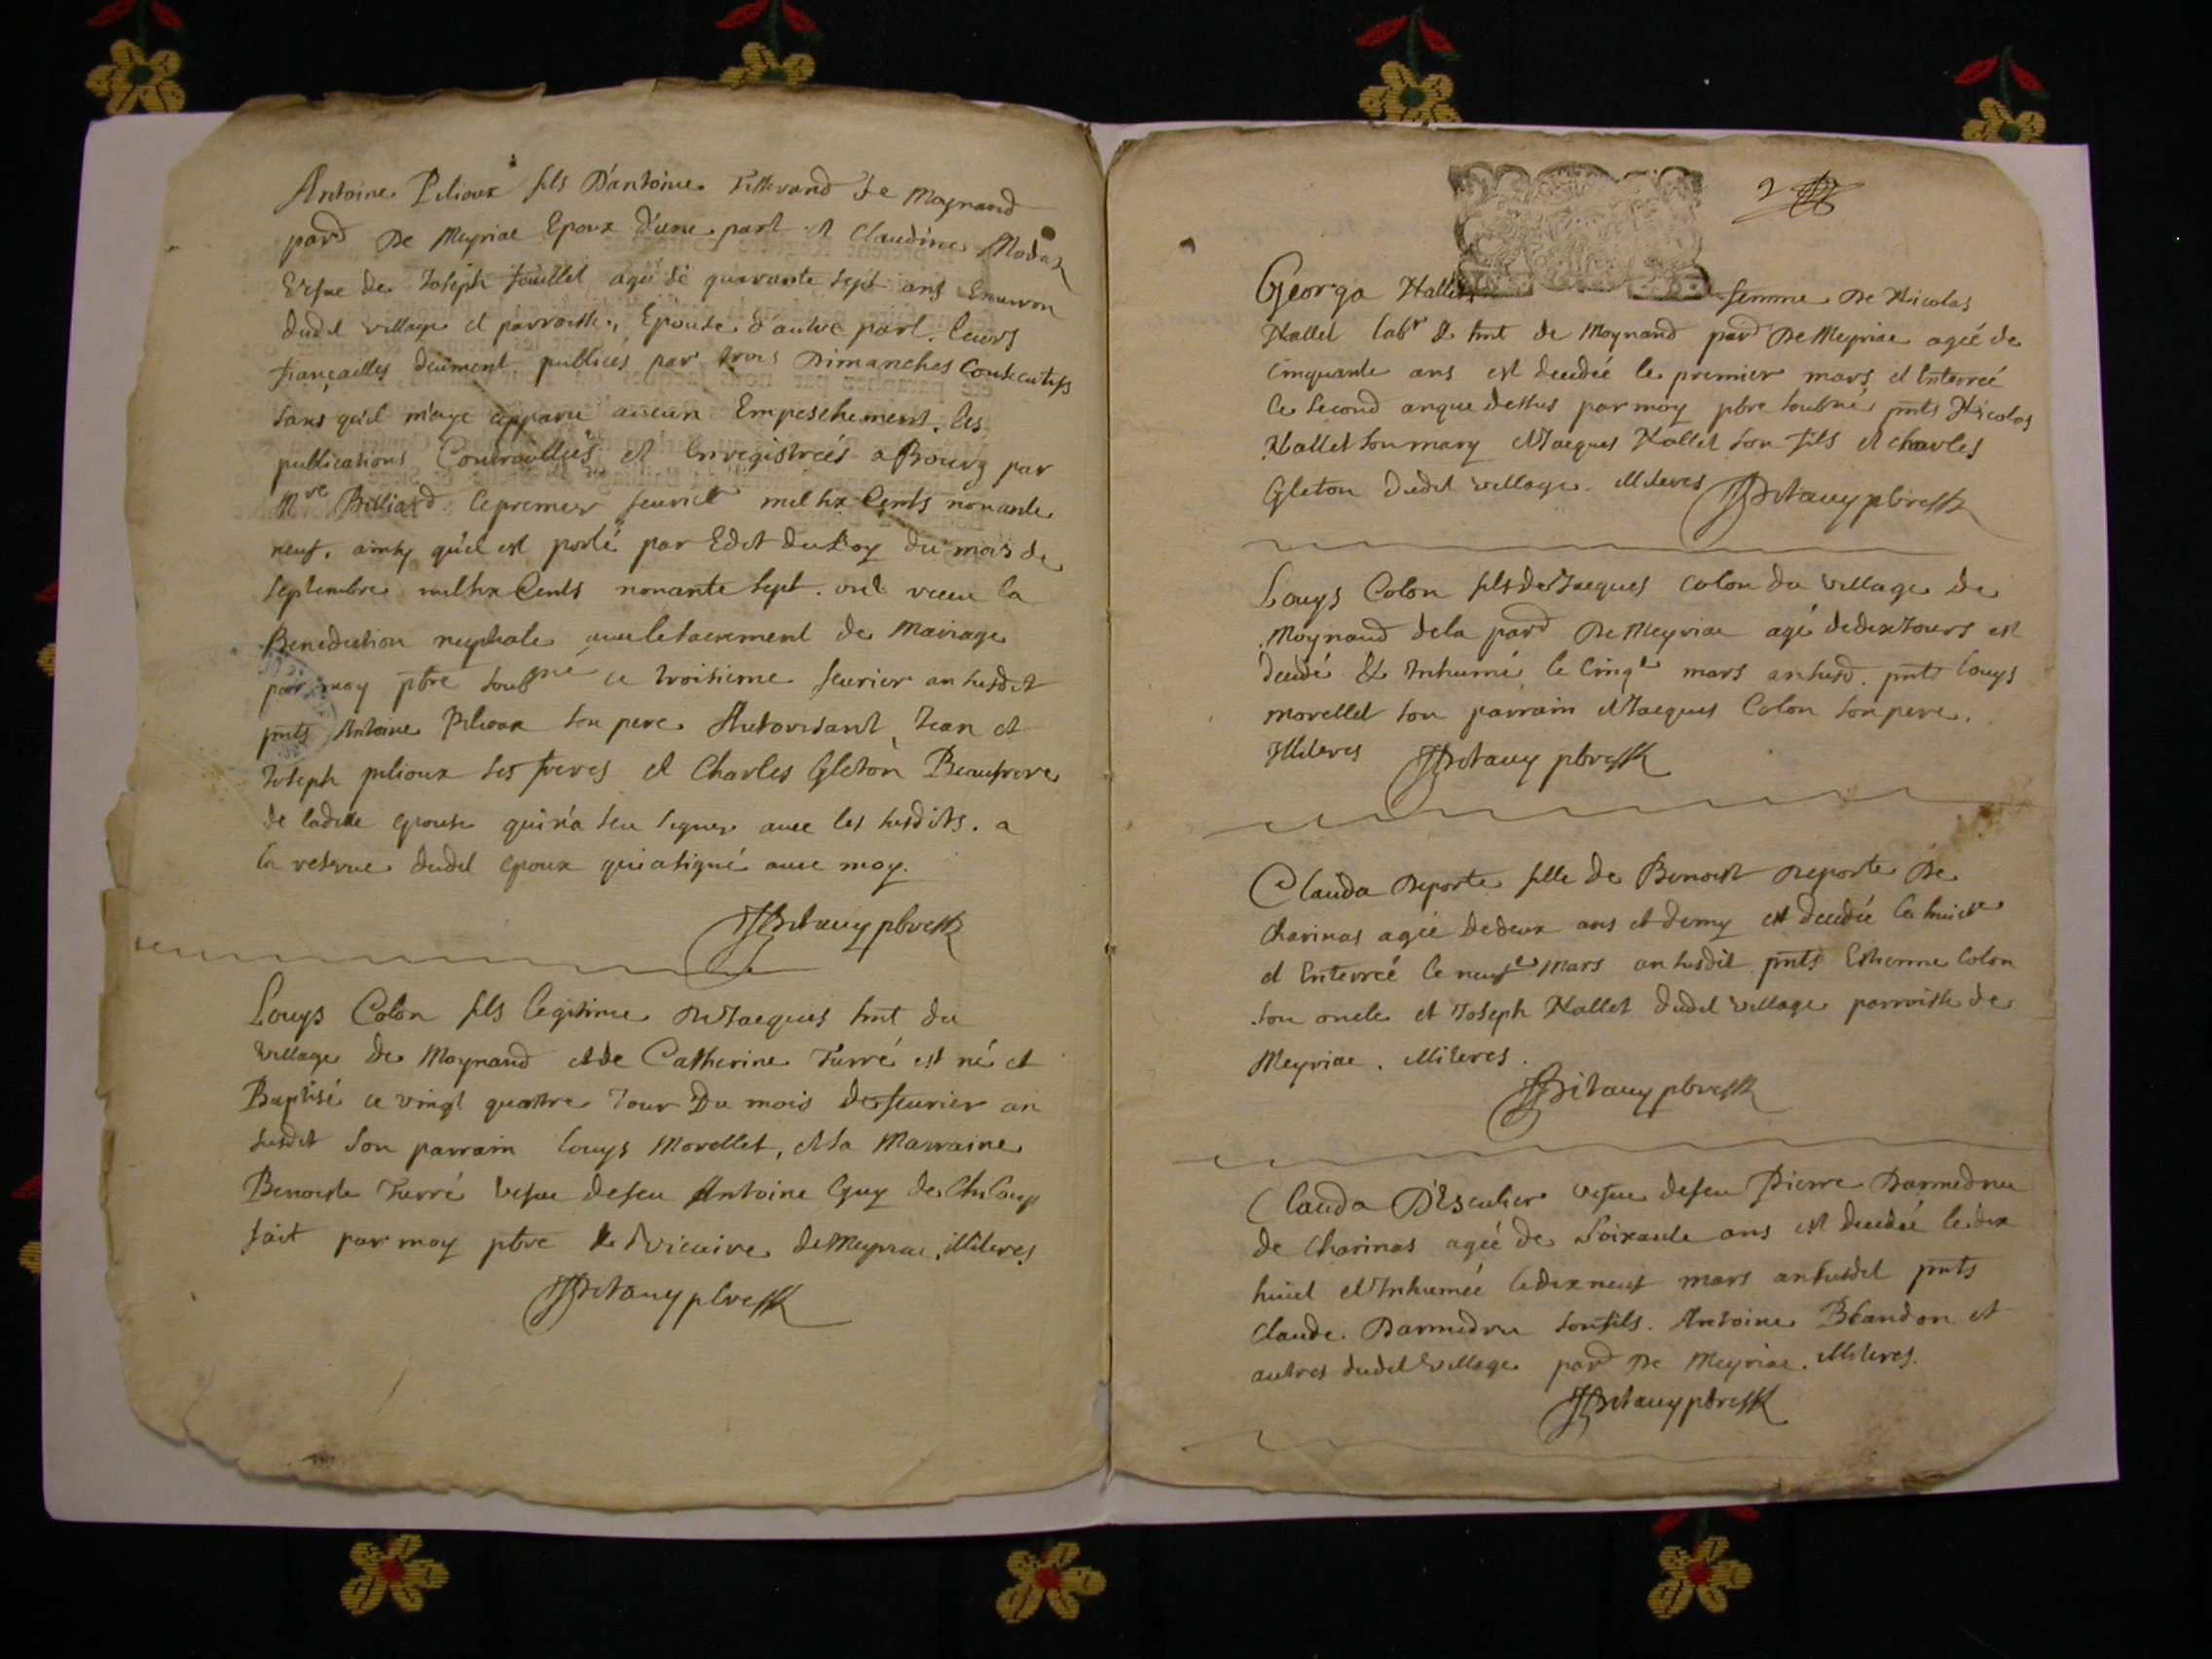 Antoine Pilioux fils D'antoine Tisserand de Moynand
pard De Meyriac Epoux d'une part et Claudine Modas
Vesue de Joseph fouillet agée de quarante sept ans Enuiron
dudit village et parroisse, Epouse d'autre part. leurs
fiançailles deüment publieés par trois Dimanches Consecutifs
sans qu'il m'aye apparu aucun Empeschement. les
publications Controulleés et Enregistreés a Bourg par
Mre Billiard le premier feurier mil six Cents nonante
neuf. ainsy qu'il est porté par Edit du Roy du mois de
septembre mil six Cents nonante sept. ont receu la
Benediction nuptiale auec le sacrement de Mariage
par moy pbre soubsné ce troisieme feurier an susdit
pnts Antoine Pilioux son pere Authorisant, Jean et
Joseph pilioux ses freres et Charles Gleton Beaufrere
de ladite epouse qui n'a sceu signer auec les susdits. a
la reserue dudit epoux qui a signé auec moy.
Louys Colon fils legitime de Jacques hnt du
village de Moynand et de Catherine Turré est né et
Baptisé ce vingt quattre Jour Du mois de feurier an
susdit son parrain louys Morellet, et sa Marraine
Benoiste Turré Vesue de feu Antoine Guy de Chiloup
fait par moy pbre & vicaire de Meyriac, illiteres
2
Georga Hallet femme De Nicolas
Hallet labr & hnt de Moynand pard De Meyriac agéé de
Cinquante ans est decedéé le premier mars et Enterréé
le second an que dessus par moy pbre soubné pnts Nicolas
Hallet son mary et Jacques Hallet son fils et charles
Gleton dudit village. illiteres
Louys Colon fils de Jacques colon du village de
Moynand de la pard De Meyriac agé de dix Jours est
decedé & Inhumé le Cinqe mars an susd. pnts louys
morellet son parrain et Jacques Colon son pere.
Illiteres
Clauda Deporte fille de Benoist Deporte De
Charinas agéé de deux ans et demy est decedéé le huicte
et Enterréé le neufe Mars an susdit pnts Estienne Colon
son oncle et Joseph Hallet dudit village parroisse de
Meyriac. illiteres.
Clauda D'Escutier vesue de feu Pierre Darmedru
de Charinas agéé de Soixante ans est decedéé le dix
huict et Inhumée le dix neuf mars an susdit pnts
Claude Darmedru son fils. Antoine Blandon et
autres dudit village pard De Meyriac. illiteres.